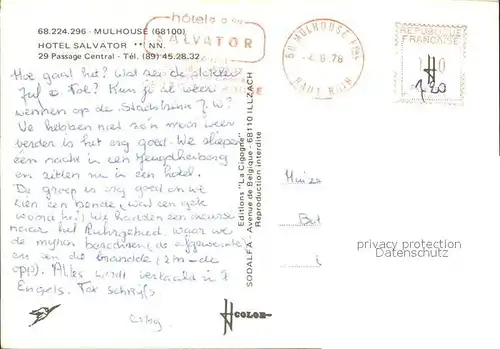 68.224.296 - MULHOUSE (68100)
HOTEL SALVATOR ** NN.
29 Passage Central - Tél. (89) 45.28.32
hôtel
SALVATOR
68 MULHOUSE
-4.8.78
HAUT RHIN
RÉPUBLIQUE
FRANÇAISE
1,20
Hoe gaat het? Wat zei de dokter
Jul v. Tol? Kun je al weer
wennen op de
We hebben niet zo'n mooi weer
verder is het erg goed. We sliepen
een nacht in een Jeugdherberg
en zitten nu in een hotel.
De groep is erg goed en we
zien een bende, wat een gek
woord hé!) We hadden een excursie
naar het Ruhrgebied, waar we
de mijnen bezochten, de afgewerkte
en en die brandde (2m de
op). Alles wordt vertaald in 't
Engels. Tot schrijfs
Editions "La Cigogne"
SODALFA - Avenue de Belgique - 68110 ILLZACH
Reproduction interdite
protected by copyright
Datenschutz
COLOR